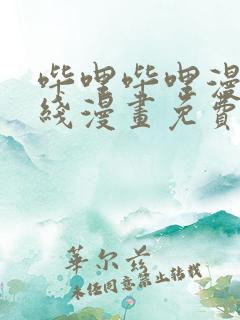 哔哩哔哩漫
线漫画免费
华尔兹
未经同意禁止转载